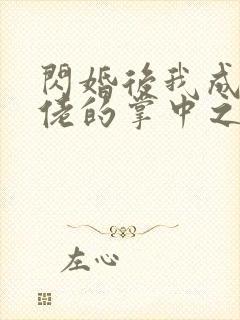 閃婚後我成
佬的掌中之
左心